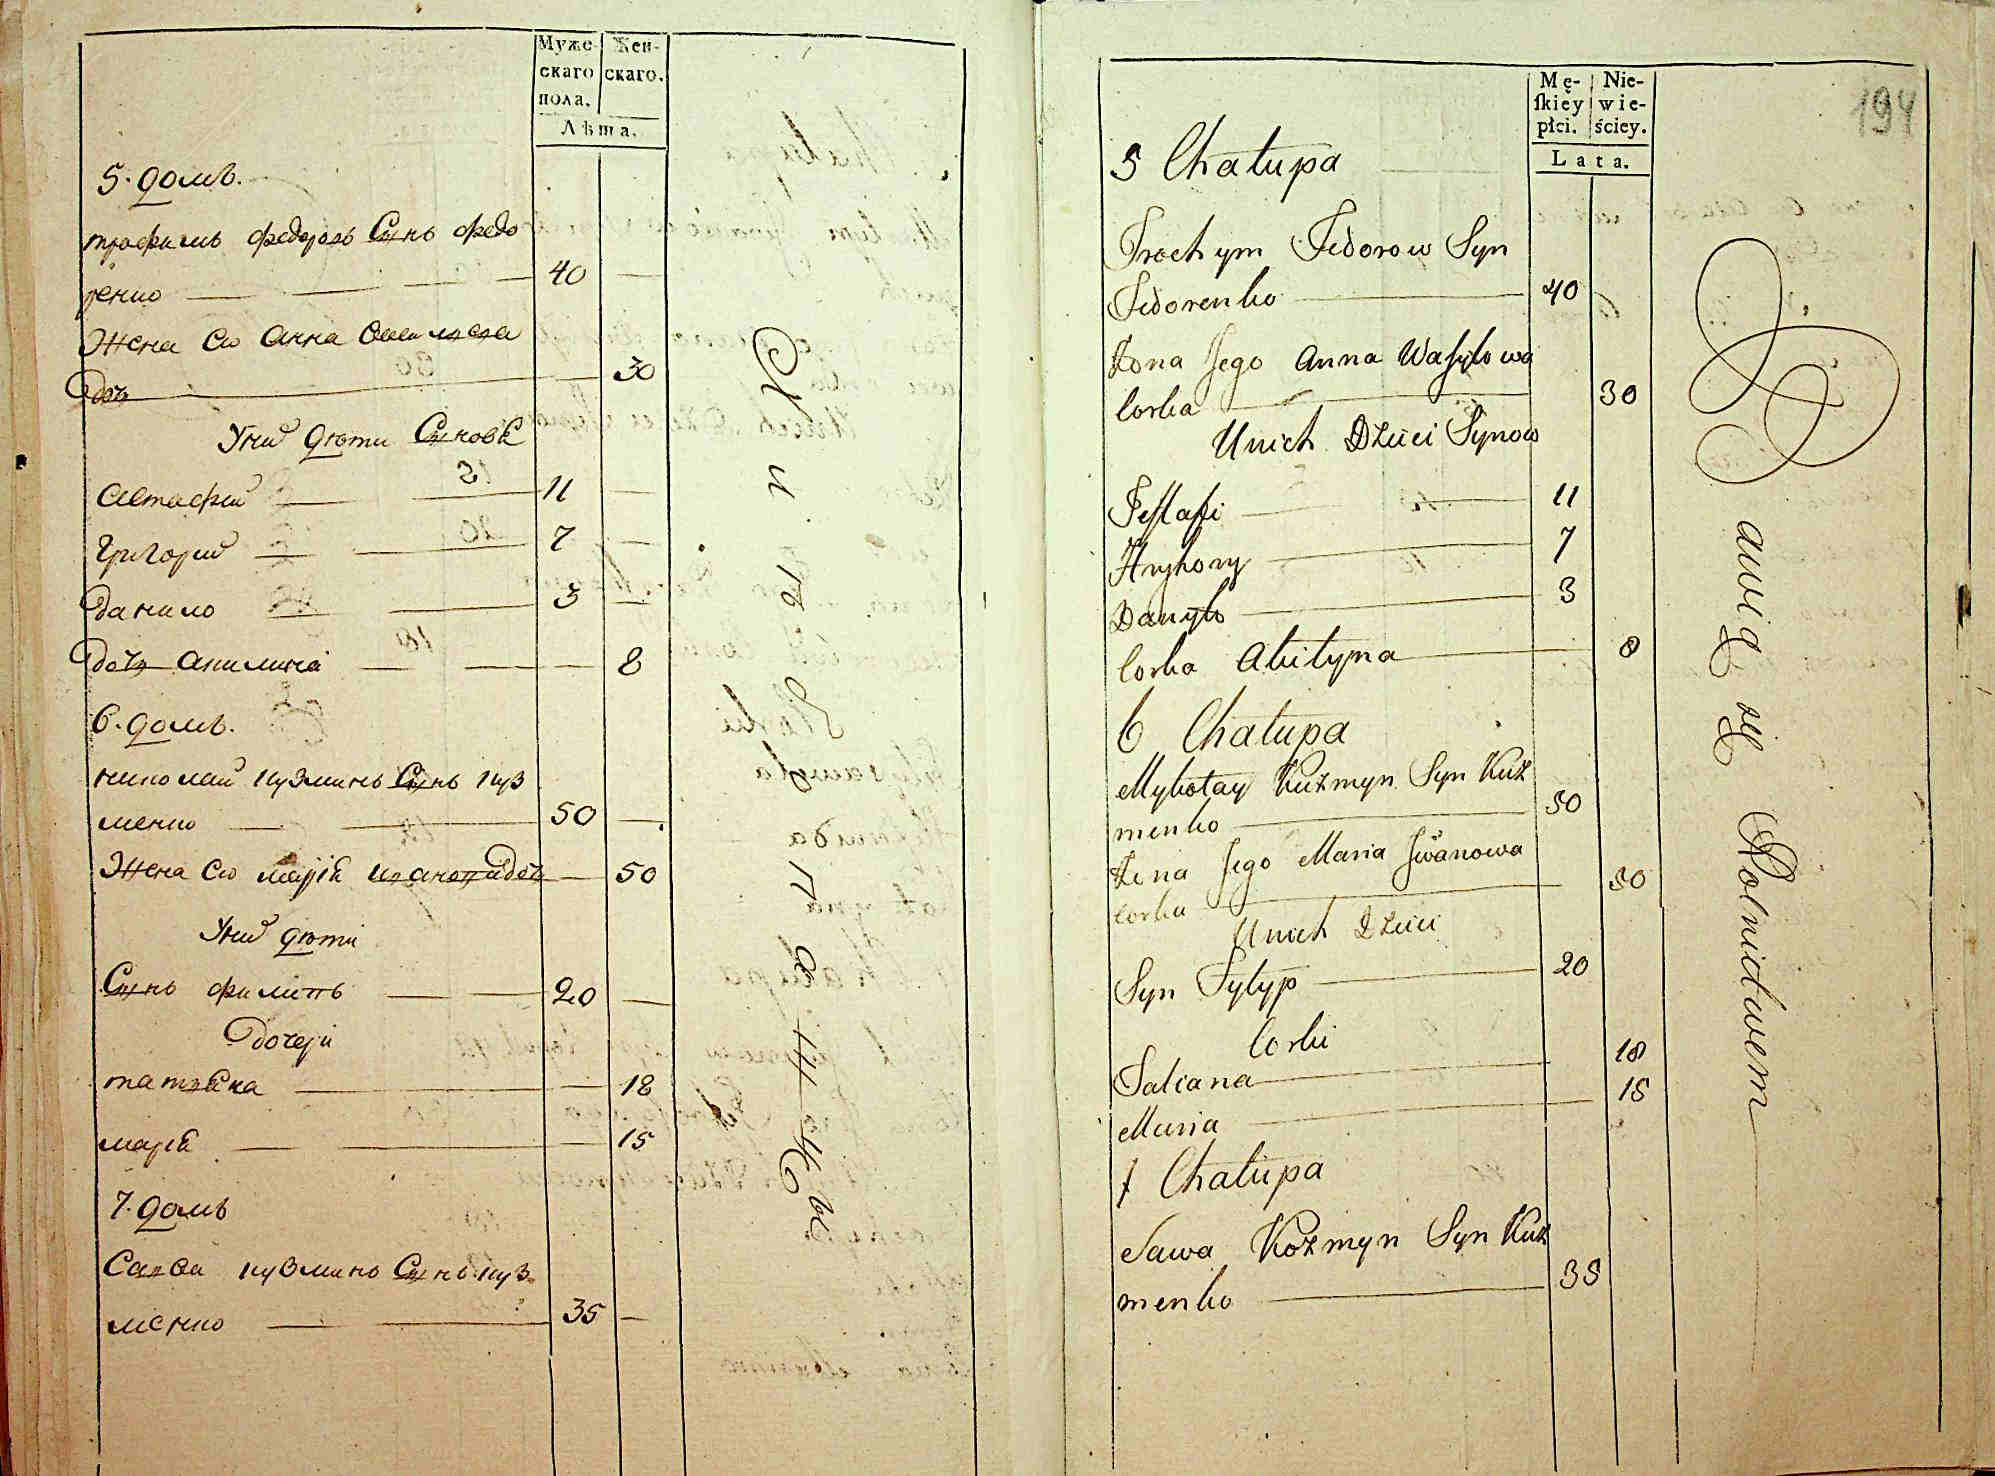 Муже-
скаго
пола.
Жен-
скаго.
Лѣта.
5. домъ.
трофимъ федоровъ Сынъ федо
ренко 40
Жена Ево Анна Василиева
дочъ 30
У них дѣти Синовѣ
Астафий 11
Григорий 7
данило 3
дочъ Акилина 8
6. домъ.
николай кузминъ Сынъ куз
менко 50
Жена Ево марія Иванова дочъ 50
У них дѣти
Сынъ филипъ 20
дочери
татіяна 18
марія 15
7. домъ
Савва кузминъ Сынъ куз
менко 35
Жители
Mę-
ſkiey
płci.
Nie-
wie-
ściey.
Lata.
194
5 Chałupa
Trochym Fedorow Syn
Fedorenko 40
Żona Jego Anna Wasylowa
Corka 30
U nich Dzieci Synow
Jestafi 11
Hryhory 7
Danyło 3
Corka Akilyna 8
6 Chałupa
Mykołay Kuźmyn Syn Kuź
menko 50
Żona Jego Maria Jwanowa
Corka 50
U nich Dzieci
Syn Fylyp 20
Corki
Taciana 18
Maria 15
7 Chałupa
Sawa Koźmyn Syn Kuź
menko 35
Bawią się Rolnictwem